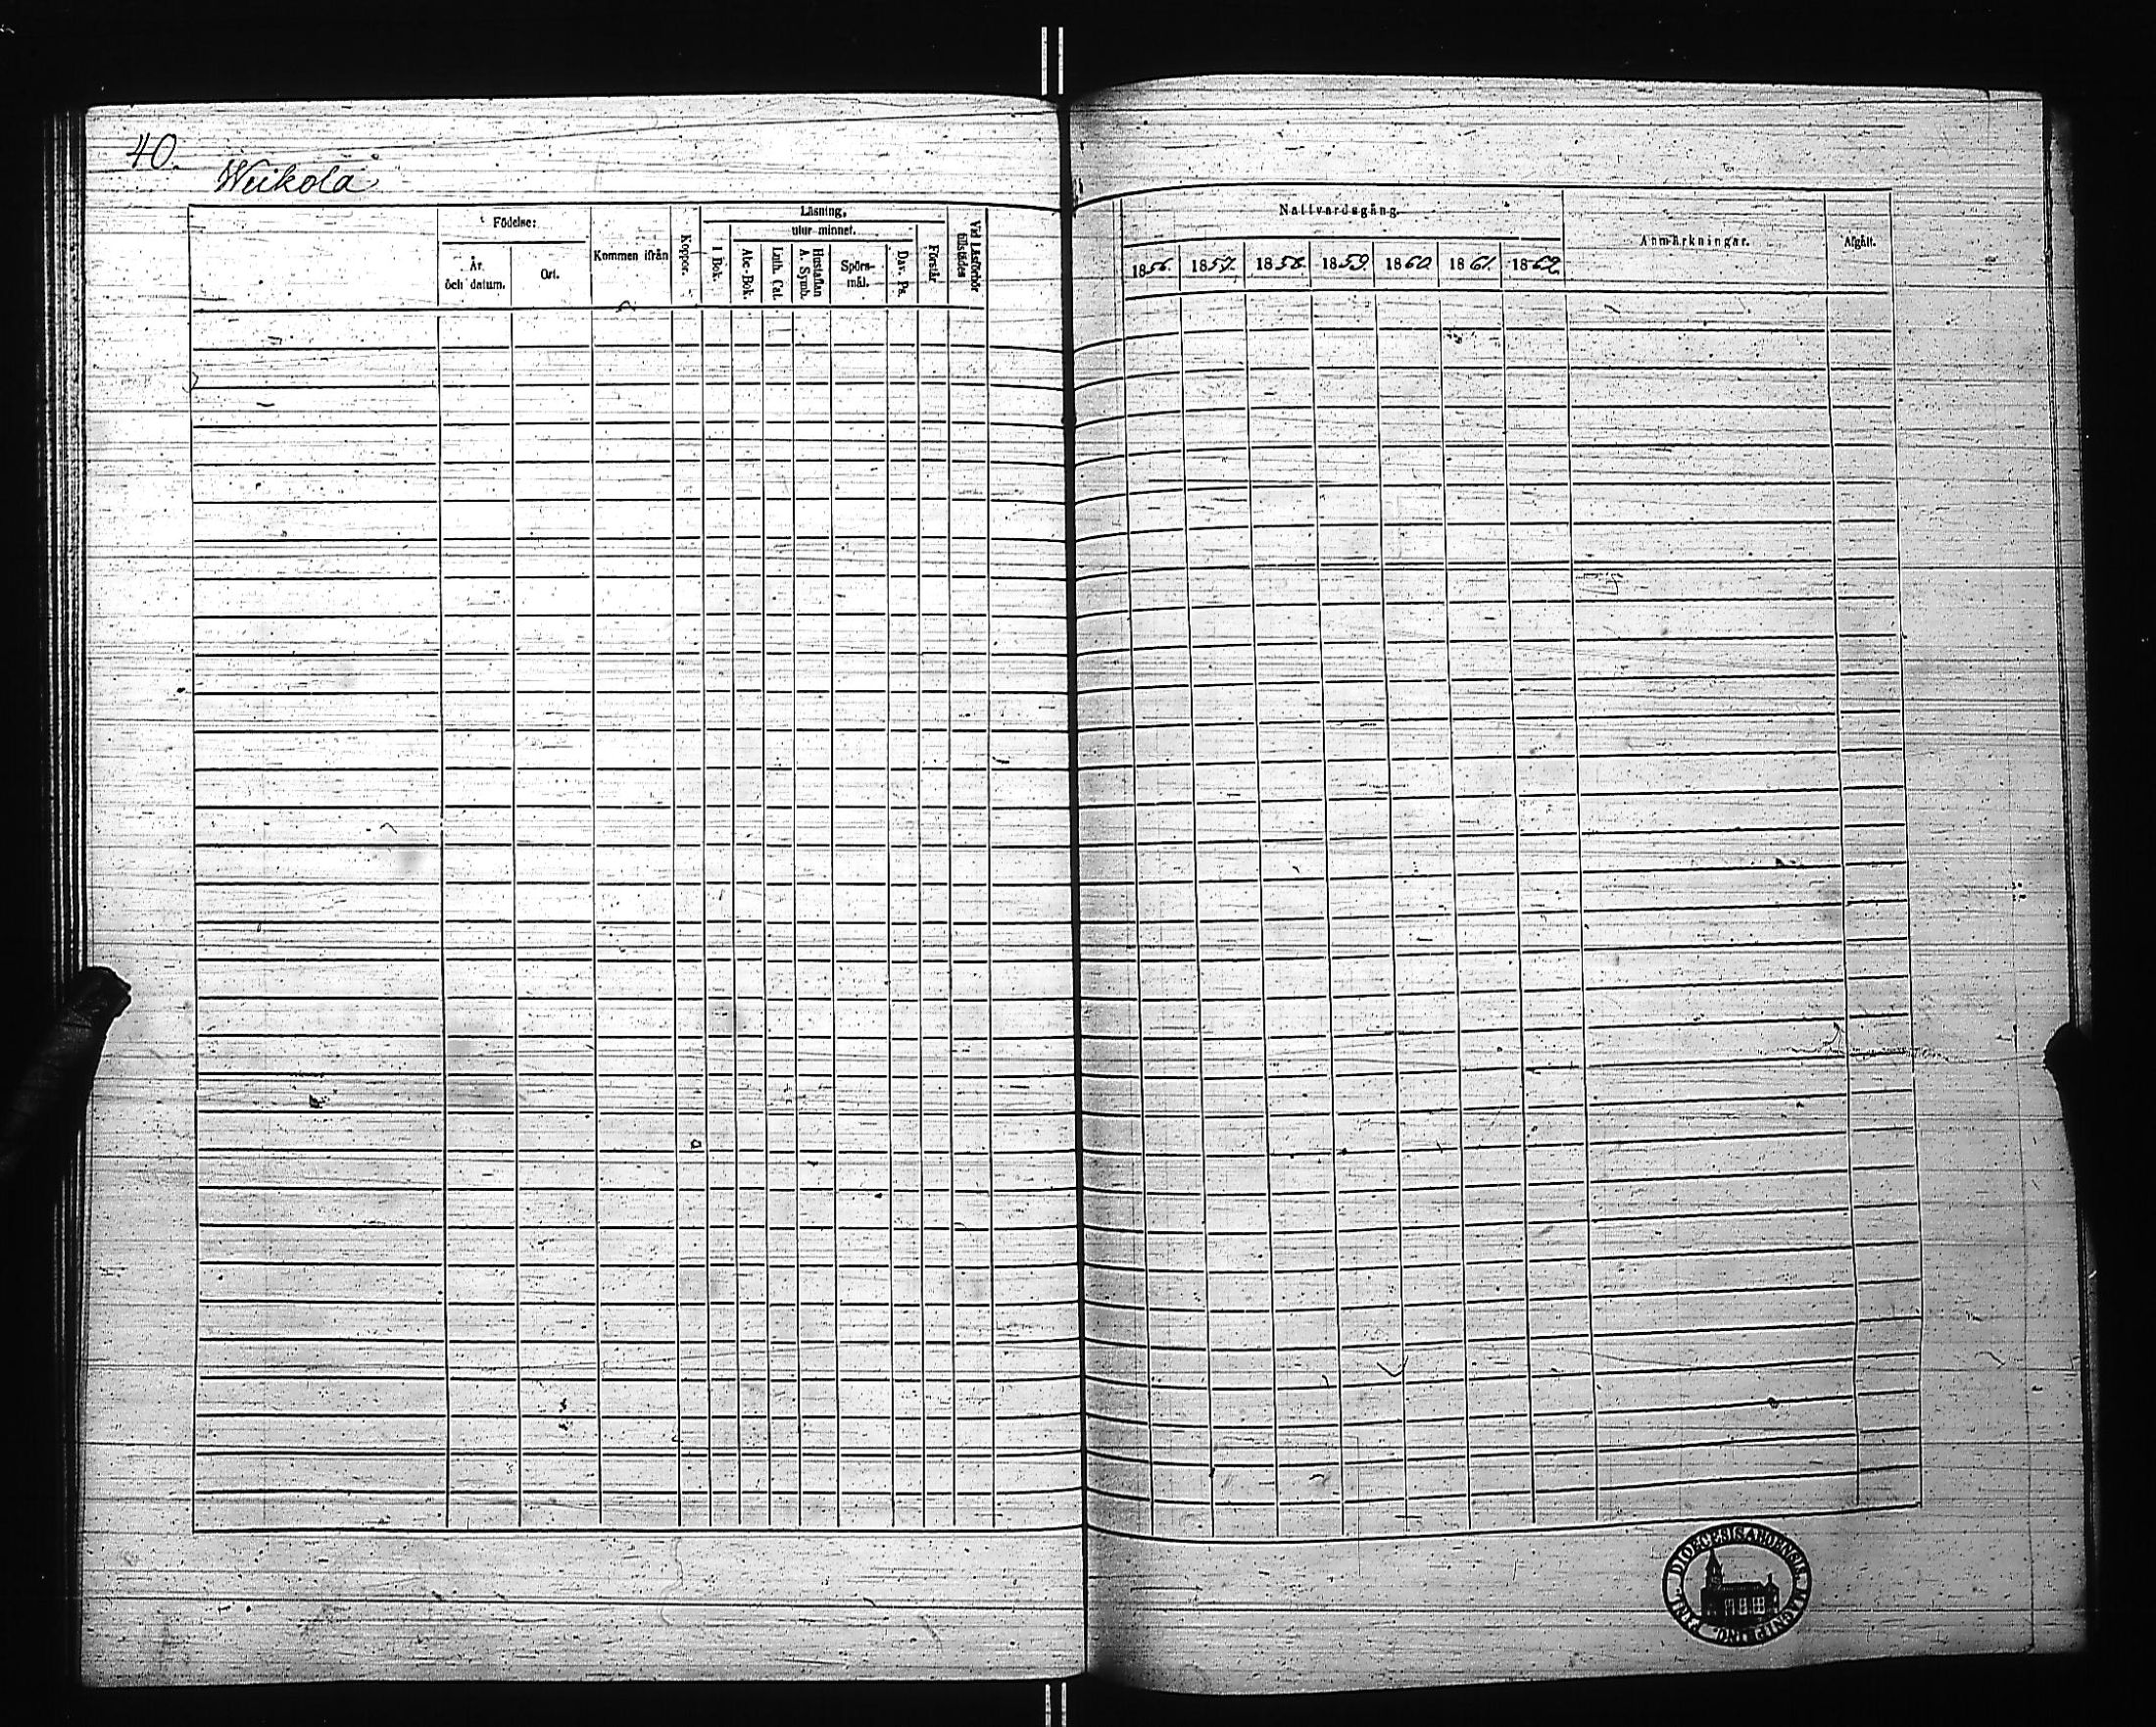 40.
Weikola
Födelse:
År och datum.
Ort.
Kommen ifrån
Koppor.
Läsning,
utur minnet.
I Bok.
Abc-Bok.
Luth. Cat.
Hustaflan A. Symb.
Spörs-mål.
Dav. Ps.
Förstår
Vid Läsförhör tillstädes
Nattvardsgång.
1856. 1857. 1858. 1859. 1860. 1861. 1862.
Anmärkningar.
Afgått.